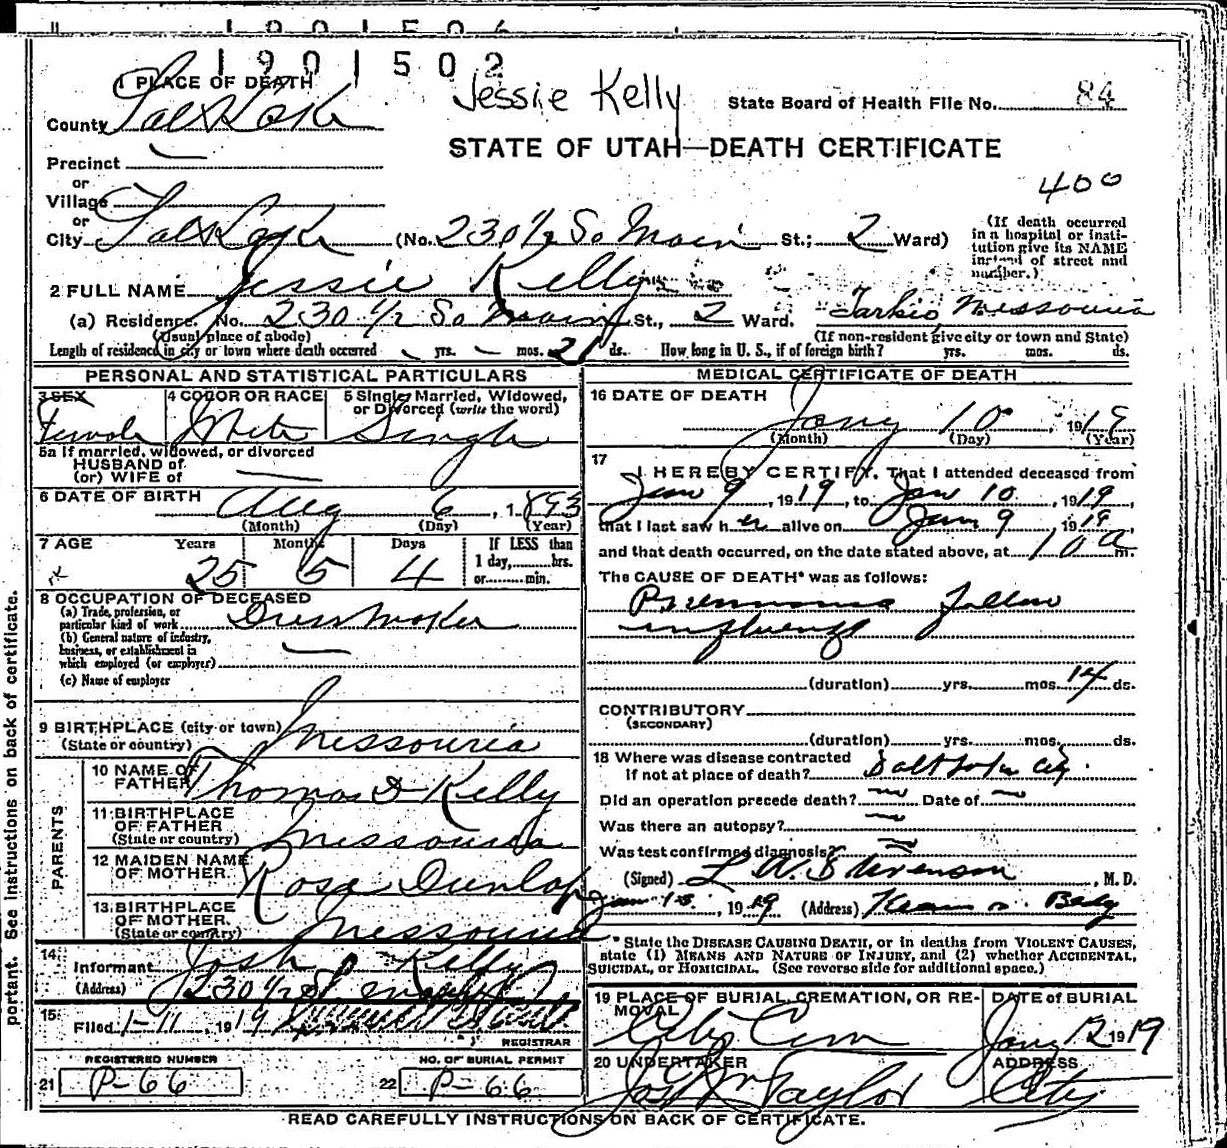 1901506
1901502
1 PLACE OF DEATH
Jessie Kelly
State Board of Health File No. 84
County Salt Lake
STATE OF UTAH—DEATH CERTIFICATE
Precinct —
or
Village
or
400
City Salt Lake (No. 230 1/2 So Main St.; 2 Ward)
(If death occurred in a hospital or institution give its NAME instead of street and number.)
2 FULL NAME Jessie Kelly
(a) Residence. No. 230 1/2 So Main St., 2 Ward. Tarkio Missouria
(Usual place of abode) (If non-resident give city or town and State)
Length of residence in city or town where death occurred - yrs. - mos. 21 ds. How long in U. S., if of foreign birth? yrs. mos. ds.
PERSONAL AND STATISTICAL PARTICULARS
3 SEX
Female
4 COLOR OR RACE
White
5 Single, Married, Widowed, or Divorced (write the word)
Single
5a If married, widowed, or divorced
HUSBAND of
(or) WIFE of —
6 DATE OF BIRTH
Aug 6, 1893
(Month) (Day) (Year)
7 AGE Years Months Days If LESS than
25 5 4 1 day,........hrs.
or.........min.
8 OCCUPATION OF DECEASED
(a) Trade, profession, or
particular kind of work Dress Maker
(b) General nature of industry,
business, or establishment in
which employed (or employer) —
(c) Name of employer
9 BIRTHPLACE (city or town)
(State or country) Missouria
PARENTS
10 NAME OF
FATHER Thomas D Kelly
11 BIRTHPLACE
OF FATHER
(State or country) Missouria
12 MAIDEN NAME
OF MOTHER. Rosa Dunlap
13 BIRTHPLACE
OF MOTHER.
(State or country) Missouria
14
Informant Josh Kelly
(Address) 230 1/2
15
Filed 1-11, 1919
REGISTRAR
REGISTERED NUMBER
21 P-66
NO. OF BURIAL PERMIT
22 P-66
MEDICAL CERTIFICATE OF DEATH
16 DATE OF DEATH
Jany 10, 1919
(Month) (Day) (Year)
17
I HEREBY CERTIFY, That I attended deceased from
Jan 9, 1919, to Jan 10, 1919
that I last saw her alive on Jan 9, 1919
and that death occurred, on the date stated above, at 10 a m.
The CAUSE OF DEATH* was as follows:
Pneumonia follow
influenza
(duration) yrs. mos. 14 ds.
CONTRIBUTORY
(SECONDARY)
(duration) yrs. mos. ds.
18 Where was disease contracted
if not at place of death? Salt Lake City.
Did an operation precede death? — Date of —
Was there an autopsy? —
Was test confirmed diagnosis? —
(Signed) L W Stevenson, M. D.
Jan 10, 1919 (Address) Kearns Bldg
* State the DISEASE CAUSING DEATH, or in deaths from VIOLENT CAUSES,
state (1) MEANS AND NATURE OF INJURY, and (2) whether ACCIDENTAL,
SUICIDAL, or HOMICIDAL. (See reverse side for additional space.)
19 PLACE OF BURIAL, CREMATION, OR REMOVAL
City Cem
DATE of BURIAL
Jany 12 1919
20 UNDERTAKER
Jos Wm Taylor
ADDRESS
City
READ CAREFULLY INSTRUCTIONS ON BACK OF CERTIFICATE.
portant. See instructions on back of certificate.